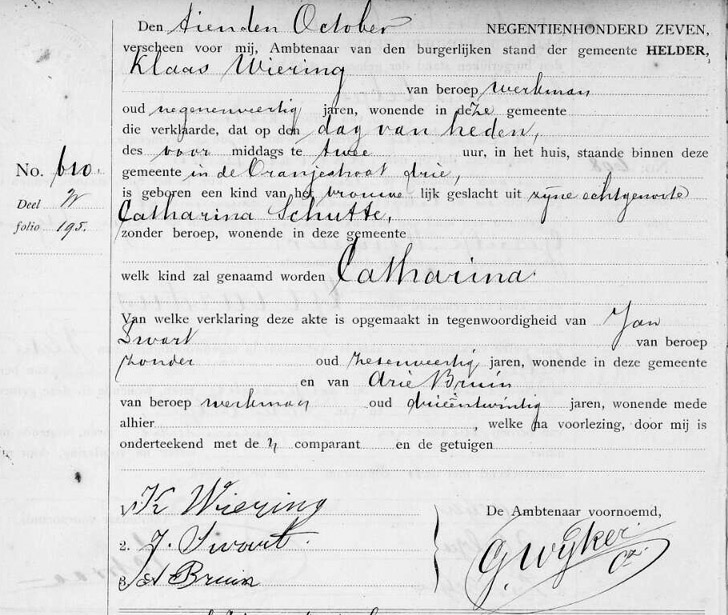 Den tienden October NEGENTIENHONDERD ZEVEN,
verscheen voor mij, Ambtenaar van den burgerlijken stand der gemeente HELDER,
Klaas Wiering
van beroep werkman
oud negenenveertig jaren, wonende in deze gemeente
die verklaarde, dat op den dag van heden,
des voor middags te twee uur, in het huis, staande binnen deze
No. 610.
gemeente in de Oranjestraat drie,
is geboren een kind van het vrouwe lijk geslacht uit zijne echtgenoote
Deel
Catharina Schutte,
folio 195.
zonder beroep, wonende in deze gemeente
welk kind zal genaamd worden Catharina
Van welke verklaring deze akte is opgemaakt in tegenwoordigheid van Jan
Swart van beroep
zonder oud zesenveertig jaren, wonende in deze gemeente
en van Arie Bruin
van beroep werkman oud drieëntwintig jaren, wonende mede
alhier , welke na voorlezing, door mij is
onderteekend met de comparant en de getuigen
1. K Wiering
De Ambtenaar voornoemd,
2. J. Swart.
G Wijker
3. A Bruin